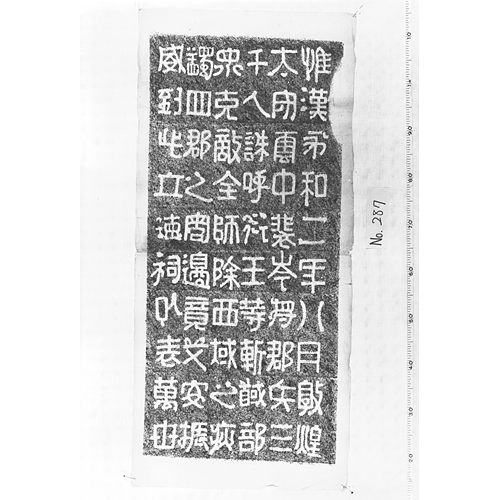 惟漢永和二年八月敦煌
太守雲中裴岑將郡兵三
千人誅呼衍王等斬馘部
衆克敵全師除西域之疢
蠲四郡之害邊竟艾安振
威到此立德祠以表萬世
No. 287